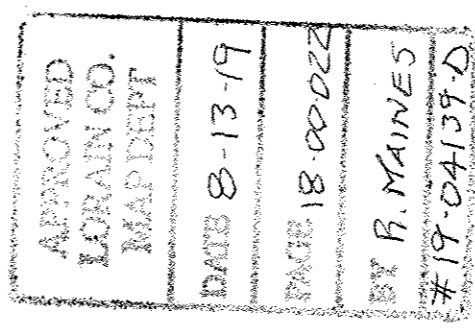 APPROVED
LORAIN CO.
MAP DEPT
DATE 8-13-19
PAGE 18-00-022
BY R. MAINES
#19-04139-D